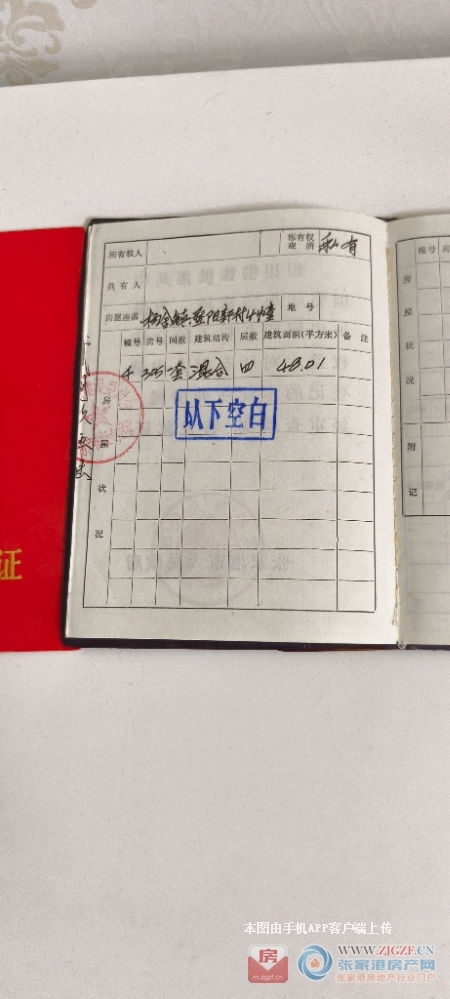 所有权人
所有权性质 私有
共有人
房屋座落 杨舍镇暨阳新村4幢 地号
幢号 房号 间数 建筑结构 层数 建筑面积(平方米) 备注
4 305 一套 混合 四 48.01
房屋状况
以下空白
证
幢号 房
房屋状况
附记
张家港市人民政府
本图由手机APP客户端上传
房
m.zjgzf.cn
WWW.ZJGZF.CN
张家港房产网
张家港房地产行业门户